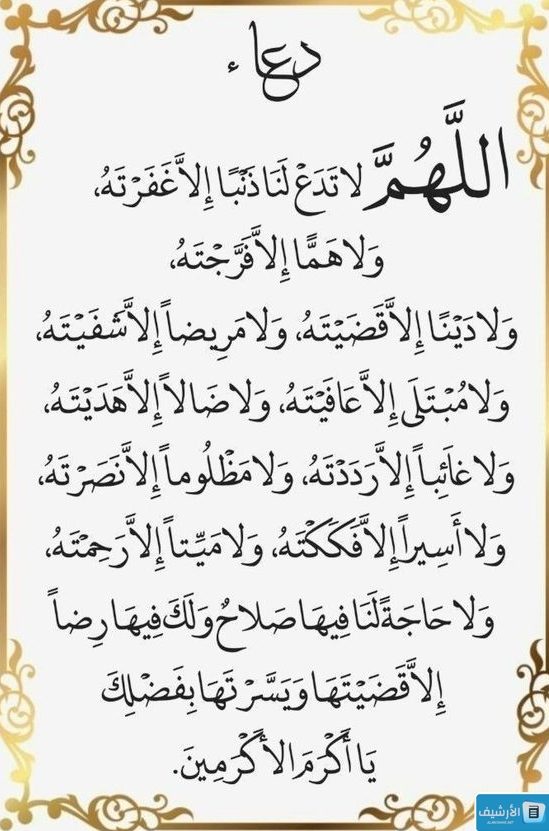 دعاء
اللَّهُمَّ لا تَدَعْ لَنَا ذَنْبًا إِلاَّ غَفَرْتَهُ،
وَلا هَمًّا إِلاَّ فَرَّجْتَهُ،
وَلا دَيْنًا إِلاَّ قَضَيْتَهُ، وَلا مَرِيضاً إِلاَّ شَفَيْتَهُ،
وَلا مُبْتَلَى إِلاَّ عَافَيْتَهُ، وَلا ضَالاً إِلاَّ هَدَيْتَهُ،
وَلا غَائِباً إِلاَّ رَدَدْتَهُ، وَلا مَظْلُوماً إِلاَّ نَصَرْتَهُ،
وَلا أَسِيراً إِلاَّ فَكَكْتَهُ، وَلا مَيِّتاً إِلاَّ رَحِمْتَهُ،
وَلا حَاجَةً لَنَا فِيهَا صَلاحٌ وَلَكَ فِيهَا رِضاً
إِلاَّ قَضَيْتَهَا وَيَسَّرْتَهَا بِفَضْلِكَ
يَا أَكْرَمَ الأَكْرَمِينَ.
الأرشيف